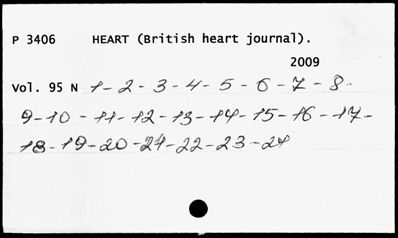 P 3406 HEART (British heart journal).
2009
Vol. 95 N 1-2-3-4-5-6-7-8-
9-10-11-12-13-14-15-16-17-
18-19-20-21-22-23-24